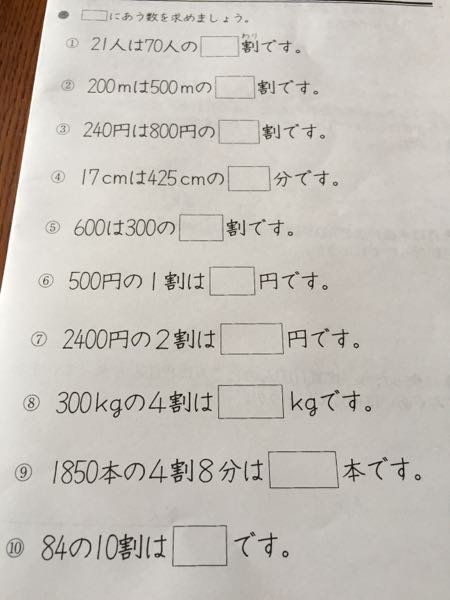 ● □にあう数を求めましょう。
① 21人は70人の□割です。
わり
② 200mは500mの□割です。
③ 240円は800円の□割です。
④ 17cmは425cmの□分です。
⑤ 600は300の□割です。
⑥ 500円の1割は□円です。
⑦ 2400円の2割は□円です。
⑧ 300kgの4割は□kgです。
⑨ 1850本の4割8分は□本です。
⑩ 84の10割は□です。